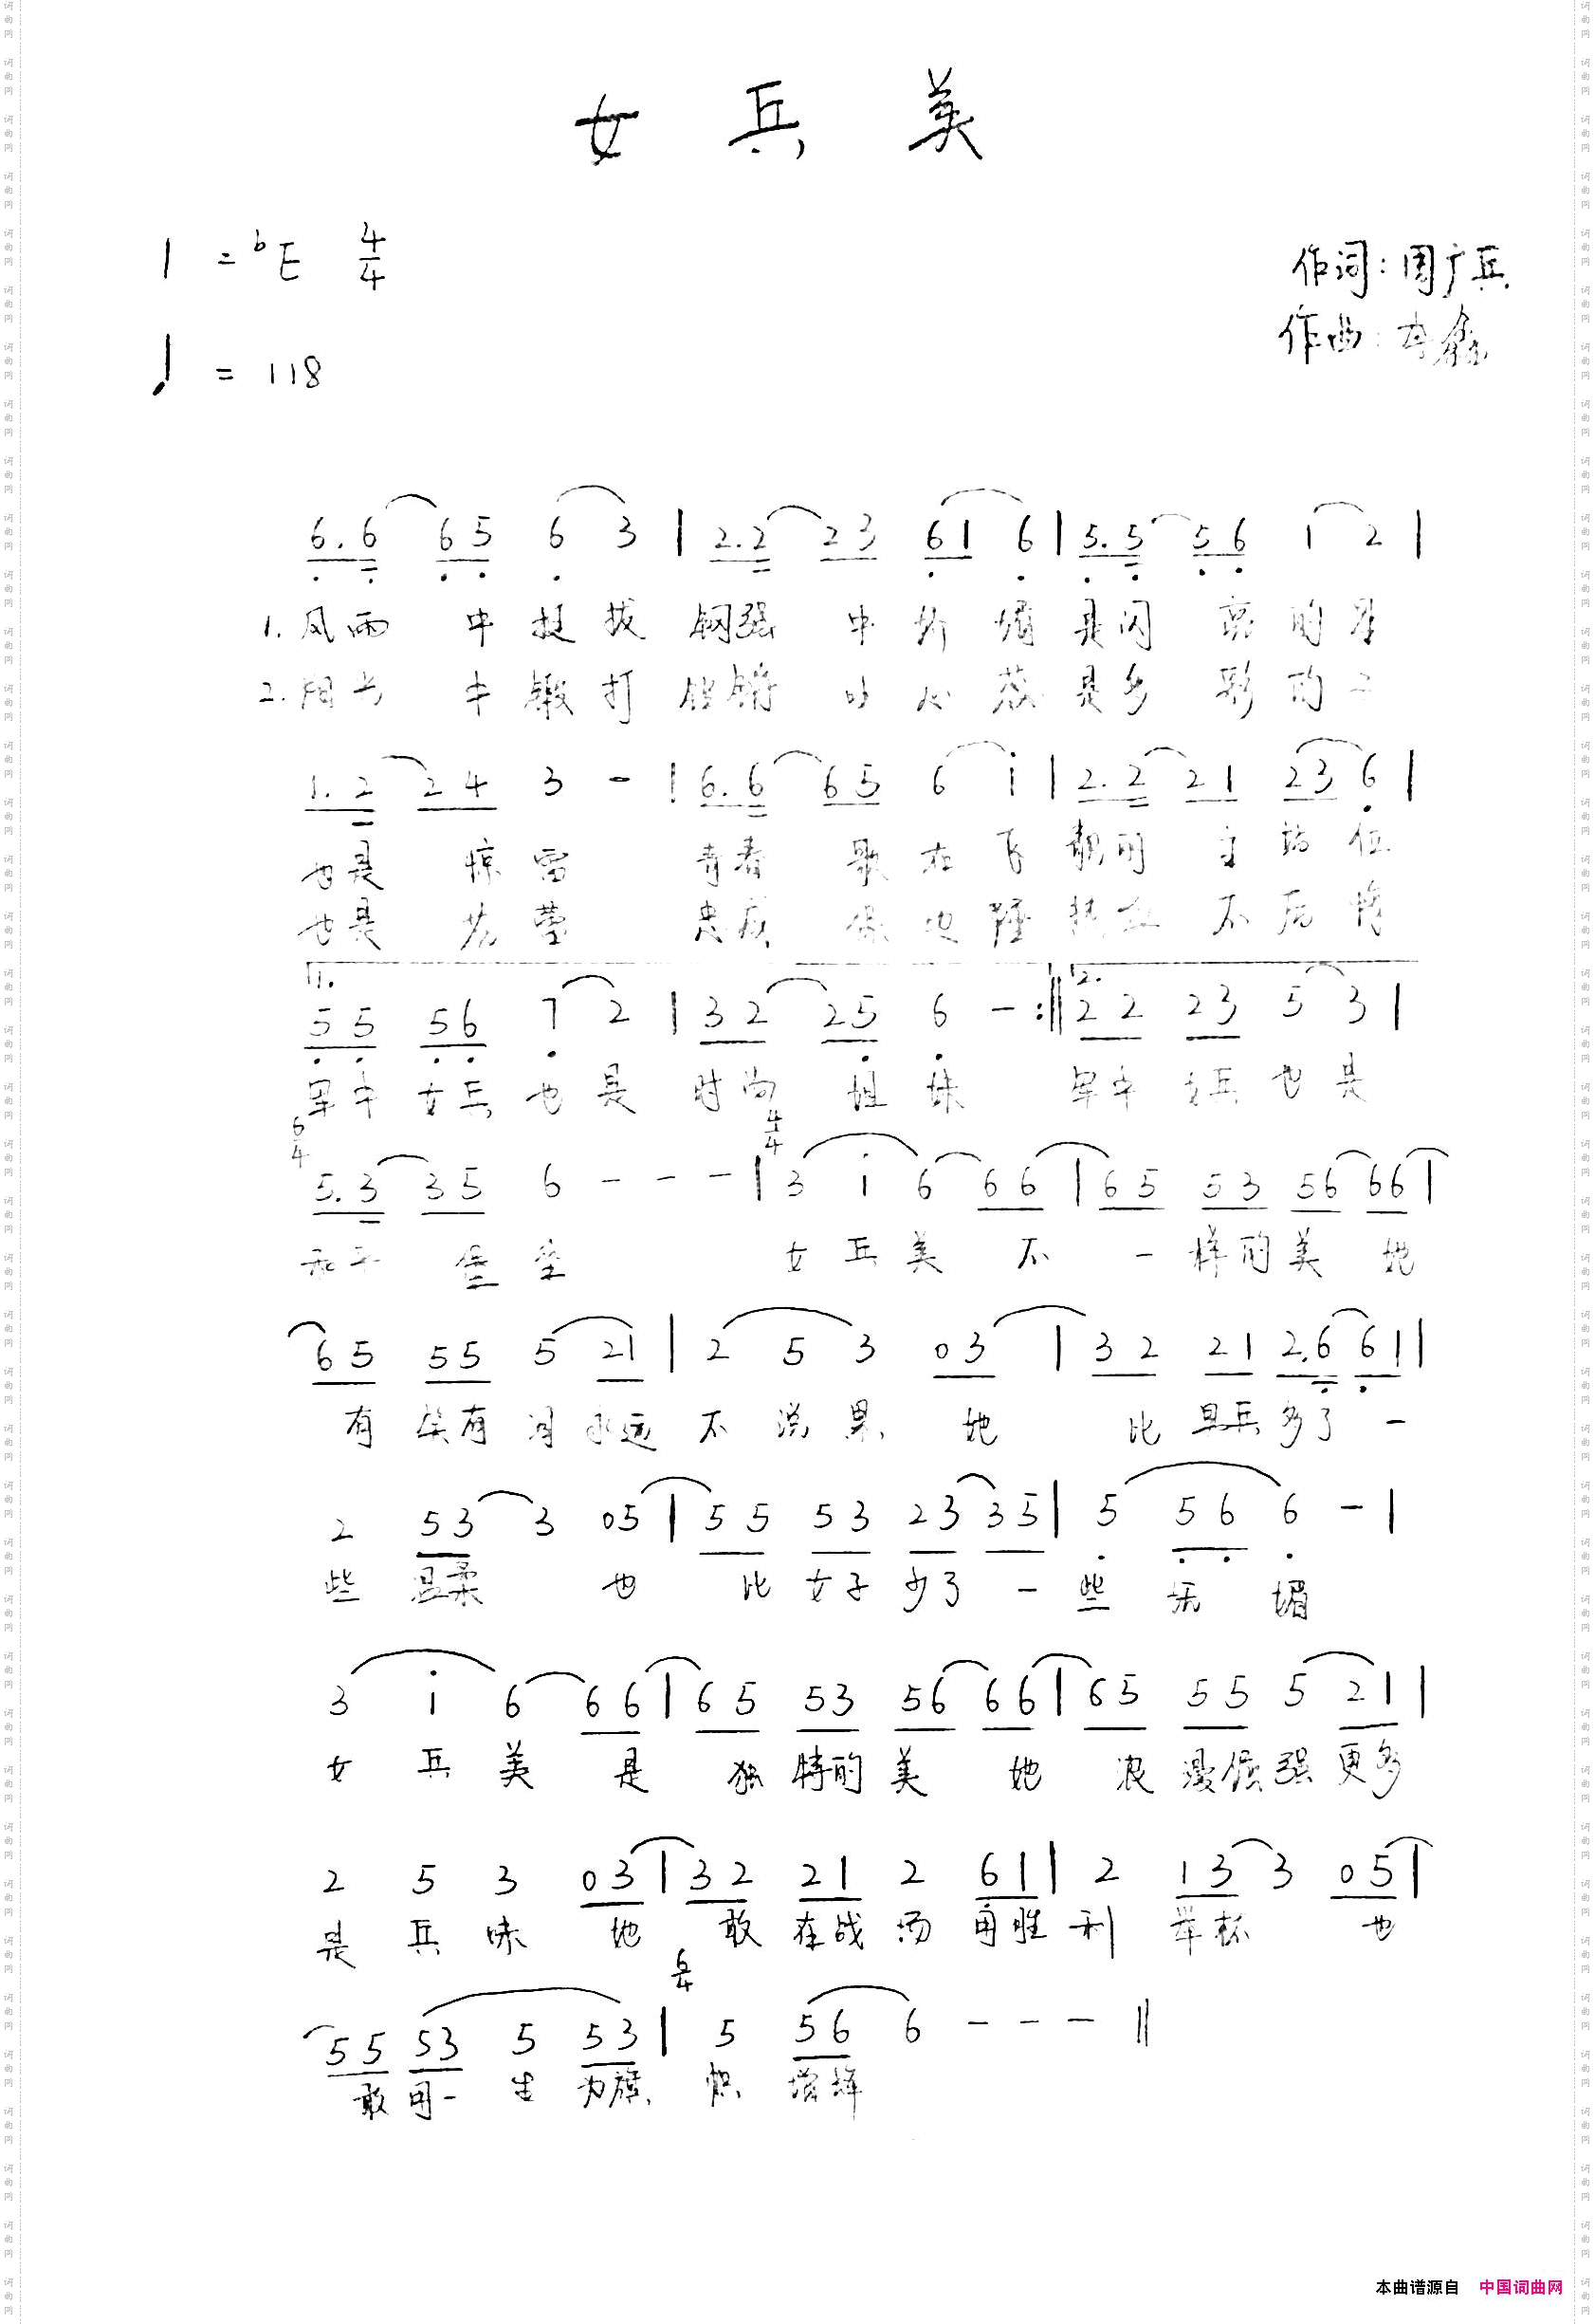 女兵美
1=bE 4/4
作词:周广兵
♩=118
作曲:
6.6 65 6 3 | 2.2 23 61 6 | 5.5 56 1 2 |
1.风雨 中 挺 拔 钢强 中 娇 媚 是闪 亮 的 星
2.阳光 中 锻 打 铿锵 中 心 蕊 是多 彩 的
1.2 24 3 - | 6.6 65 6 i | 2.2 21 23 6 |
也是 惊 雷 青春 歌 在 飞 靓丽 站 位
也是 花 蕾 忠诚 保 边 陲 热血 不 后 悔
1. 55 56 7 2 | 32 25 6 - :|| 2. 22 23 5 3 |
军中 女兵 也 是 时尚 姐 妹 军中 女兵 也 是
6/4 4/4
5.3 35 6 - - - | 3 i 6 66 | 65 53 56 66 |
和平 堡垒 女 兵 美 不 一 样的 美 她
65 55 5 21 | 2 5 3 03 | 32 21 2.6 61 |
有 笑有 泪 永远 不 说 累 她 比 男兵 多了 一
2 53 3 05 | 55 53 23 35 | 5 56 6 - |
些 温柔 也 比 女子 少了 一 些 妩 媚
3 i 6 66 | 65 53 56 66 | 65 55 5 21 |
女 兵 美 是 独 特的 美 她 浪 漫倔 强 更多
2 5 3 03 | 32 21 2 61 | 2 13 3 05 |
是 兵 味 她 敢 在战 场 用胜 利 举杯 也
6/4
55 53 5 53 | 5 56 6 - - - ||
敢 用一 生 为旗 帜 增辉
本曲谱源自 中国词曲网